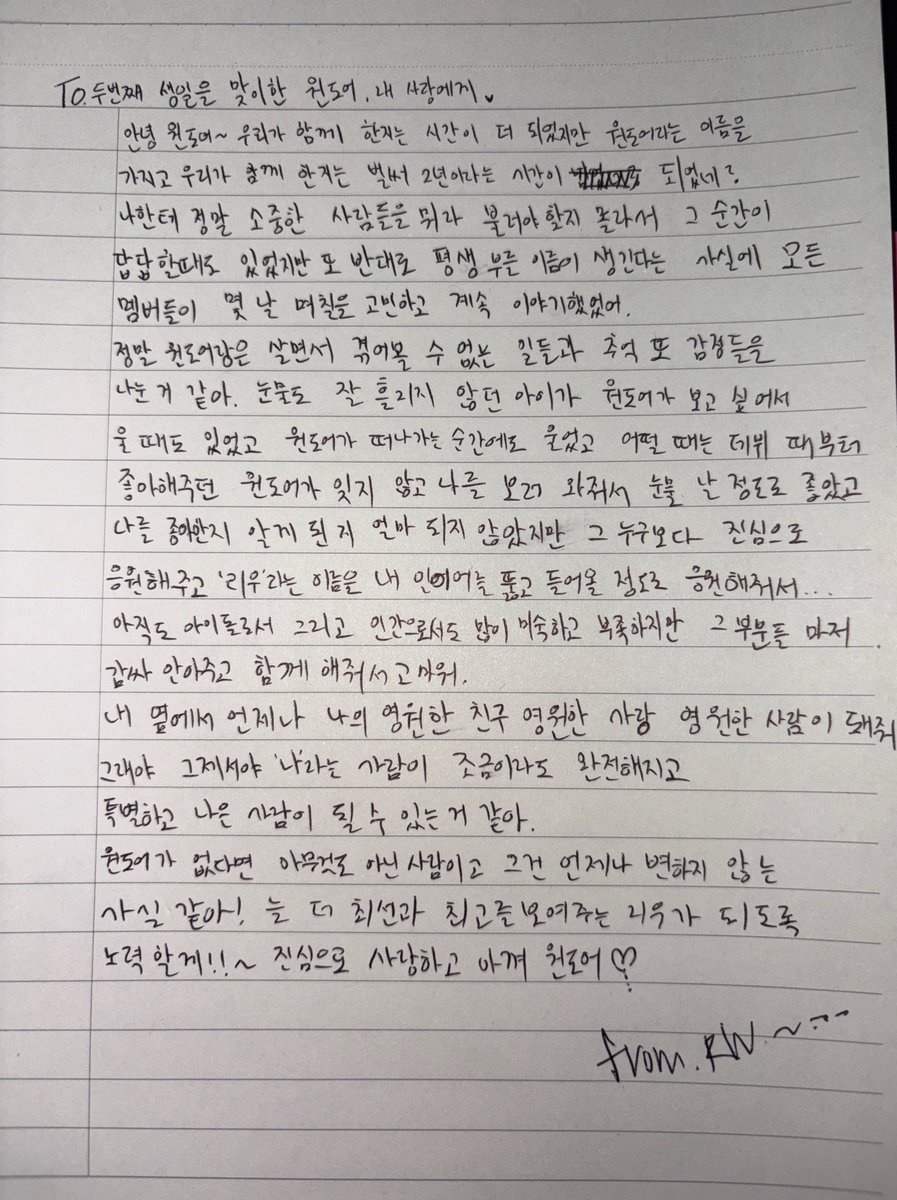 To. 두번째 생일을 맞이한 원도어, 내 사랑에게♥
안녕 원도어~ 우리가 함께 한지는 시간이 더 되었지만 원도어라는 이름을
가지고 우리가 함께 한지는 벌써 2년이라는 시간이 되었네?
나한테 정말 소중한 사람들을 뭐라 불러야할지 몰라서 그 순간이
답답할때도 있었지만 또 반대로 평생 부를 이름이 생긴다는 사실에 모든
멤버들이 몇 날 며칠을 고민하고 계속 이야기했었어.
정말 원도어랑은 살면서 겪어볼 수 없는 일들과 추억 또 감정들을
나눈 거 같아. 눈물도 잘 흘리지 않던 아이가 원도어가 보고 싶어서
울 때도 있었고 원도어가 떠나가는 순간에도 울었고 어떨 때는 데뷔 때부터
좋아해주던 원도어가 잊지 않고 나를 보러 와줘서 눈물 날 정도로 좋았고
나를 좋아한지 알게 된 지 얼마 되지 않았지만 그 누구보다 진심으로
응원해주고 '리우'라는 이름을 내 인이어를 뚫고 들어올 정도로 응원해줘서...
아직도 아이돌로서 그리고 인간으로서도 많이 미숙하고 부족하지만 그 부분들 마저
감싸 안아주고 함께 해줘서 고마워.
내 옆에서 언제나 나의 영원한 친구 영원한 사랑 영원한 사람이 돼줘
그래야 그제서야 '나'라는 사람이 조금이라도 완전해지고
특별하고 나은 사람이 될 수 있는 거 같아.
원도어가 없다면 아무것도 아닌 사람이고 그건 언제나 변하지 않는
사실 같아! 늘 더 최선과 최고를 보여주는 리우가 되도록
노력 할게!!~ 진심으로 사랑하고 아껴 원도어♡
from. RW.~